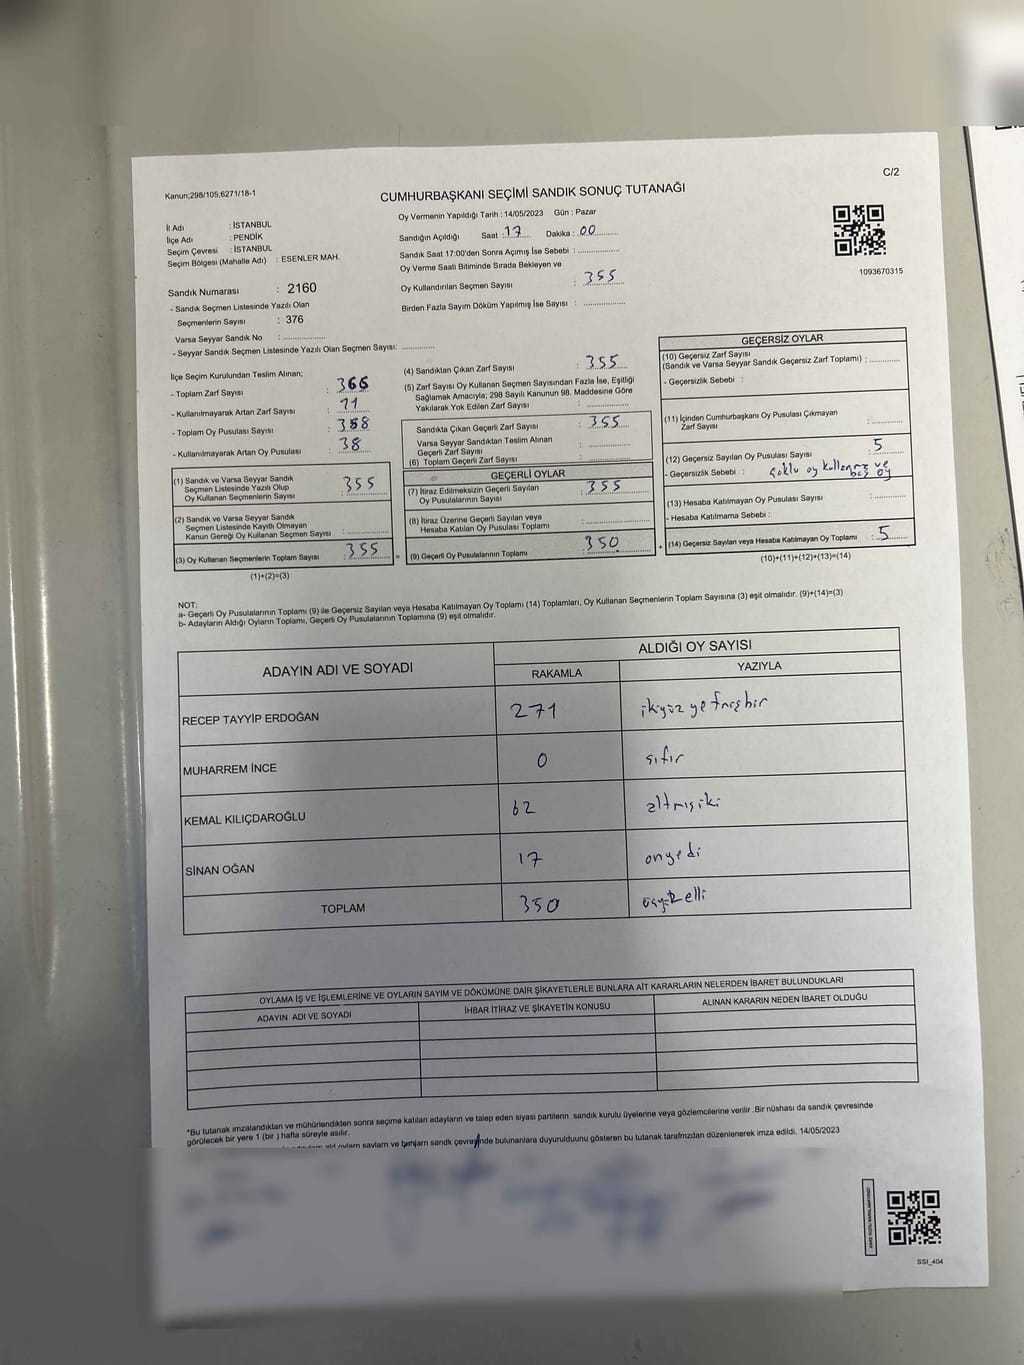 Kanun;298/105;6271/18-1
C/2
CUMHURBAŞKANI SEÇİMİ SANDIK SONUÇ TUTANAĞI
İl Adı : İSTANBUL
İlçe Adı : PENDİK
Seçim Çevresi : İSTANBUL
Seçim Bölgesi (Mahalle Adı) : ESENLER MAH.
Sandık Numarası : 2160
- Sandık Seçmen Listesinde Yazılı Olan
Seçmenlerin Sayısı : 376
Varsa Seyyar Sandık No : ...............
- Seyyar Sandık Seçmen Listesinde Yazılı Olan Seçmen Sayısı: ............
Oy Vermenin Yapıldığı Tarih : 14/05/2023 Gün : Pazar
Sandığın Açıldığı Saat : 17 Dakika : 00
Sandık Saat 17:00'den Sonra Açımış İse Sebebi : ...............
Oy Verme Saati Bitiminde Sırada Bekleyen ve
Oy Kullandırılan Seçmen Sayısı : 355
Birden Fazla Sayım Döküm Yapılmış İse Sayısı : ...............
1093670315
İlçe Seçim Kurulundan Teslim Alınan;
- Toplam Zarf Sayısı : 366
- Kullanılmayarak Artan Zarf Sayısı : 11
- Toplam Oy Pusulası Sayısı : 388
- Kullanılmayarak Artan Oy Pusulası : 38
(1) Sandık ve Varsa Seyyar Sandık
Seçmen Listesinde Yazılı Olup
Oy Kullanan Seçmenlerin Sayısı : 355
(2) Sandık ve Varsa Seyyar Sandık
Seçmen Listesinde Kayıtlı Olmayan
Kanun Gereği Oy Kullanan Seçmen Sayısı : ............
(3) Oy Kullanan Seçmenlerin Toplam Sayısı : 355
(1)+(2)=(3)
(4) Sandıktan Çıkan Zarf Sayısı : 355
(5) Zarf Sayısı Oy Kullanan Seçmen Sayısından Fazla İse, Eşitliği
Sağlamak Amacıyla; 298 Sayılı Kanunun 98. Maddesine Göre
Yakılarak Yok Edilen Zarf Sayısı : ............
Sandıkta Çıkan Geçerli Zarf Sayısı : 355
Varsa Seyyar Sandıktan Teslim Alınan
Geçerli Zarf Sayısı : ............
(6) Toplam Geçerli Zarf Sayısı : ............
GEÇERLİ OYLAR
(7) İtiraz Edilmeksizin Geçerli Sayılan
Oy Pusulalarının Sayısı : 355
(8) İtiraz Üzerine Geçerli Sayılan veya
Hesaba Katılan Oy Pusulası Toplamı : ............
= (9) Geçerli Oy Pusulalarının Toplamı : 350
GEÇERSİZ OYLAR
(10) Geçersiz Zarf Sayısı
(Sandık ve Varsa Seyyar Sandık Geçersiz Zarf Toplamı) : ............
- Geçersizlik Sebebi :
(11) İçinden Cumhurbaşkanı Oy Pusulası Çıkmayan
Zarf Sayısı : ............
(12) Geçersiz Sayılan Oy Pusulası Sayısı : 5
- Geçersizlik Sebebi : Çoklu oy ve boş oy
(13) Hesaba Katılmayan Oy Pusulası Sayısı : ............
- Hesaba Katılmama Sebebi :
+ (14) Geçersiz Sayılan veya Hesaba Katılmayan Oy Toplamı : 5
(10)+(11)+(12)+(13)=(14)
NOT:
a- Geçerli Oy Pusulalarının Toplamı (9) ile Geçersiz Sayılan veya Hesaba Katılmayan Oy Toplamı (14) Toplamları, Oy Kullanan Seçmenlerin Toplam Sayısına (3) eşit olmalıdır. (9)+(14)=(3)
b- Adayların Aldığı Oyların Toplamı, Geçerli Oy Pusulalarının Toplamına (9) eşit olmalıdır.
ADAYIN ADI VE SOYADI
ALDIĞI OY SAYISI
RAKAMLA YAZIYLA
RECEP TAYYİP ERDOĞAN 271 ikiyüz yetmişbir
MUHARREM İNCE 0 sıfır
KEMAL KILIÇDAROĞLU 62 altmışiki
SİNAN OĞAN 17 onyedi
TOPLAM 350 üçyüzelli
OYLAMA İŞ VE İŞLEMLERİNE VE OYLARIN SAYIM VE DÖKÜMÜNE DAİR ŞİKAYETLERLE BUNLARA AİT KARARLARIN NELERDEN İBARET BULUNDUKLARI
ADAYIN ADI VE SOYADI İHBAR İTİRAZ VE ŞİKAYETİN KONUSU ALINAN KARARIN NEDEN İBARET OLDUĞU
*Bu tutanak imzalandıktan ve mühürlendikten sonra seçime katılan adayların ve talep eden siyasi partilerin sandık kurulu üyelerine veya gözlemcilerine verilir .Bir nüshası da sandık çevresinde
görülecek bir yere 1 (bir ) hafta süreyle asılır.
sandık çevresinde bulunanlara duyurulduunu gösteren bu tutanak tarafmzdan düzenlenerek imza edildi. 14/05/2023
SSI_404